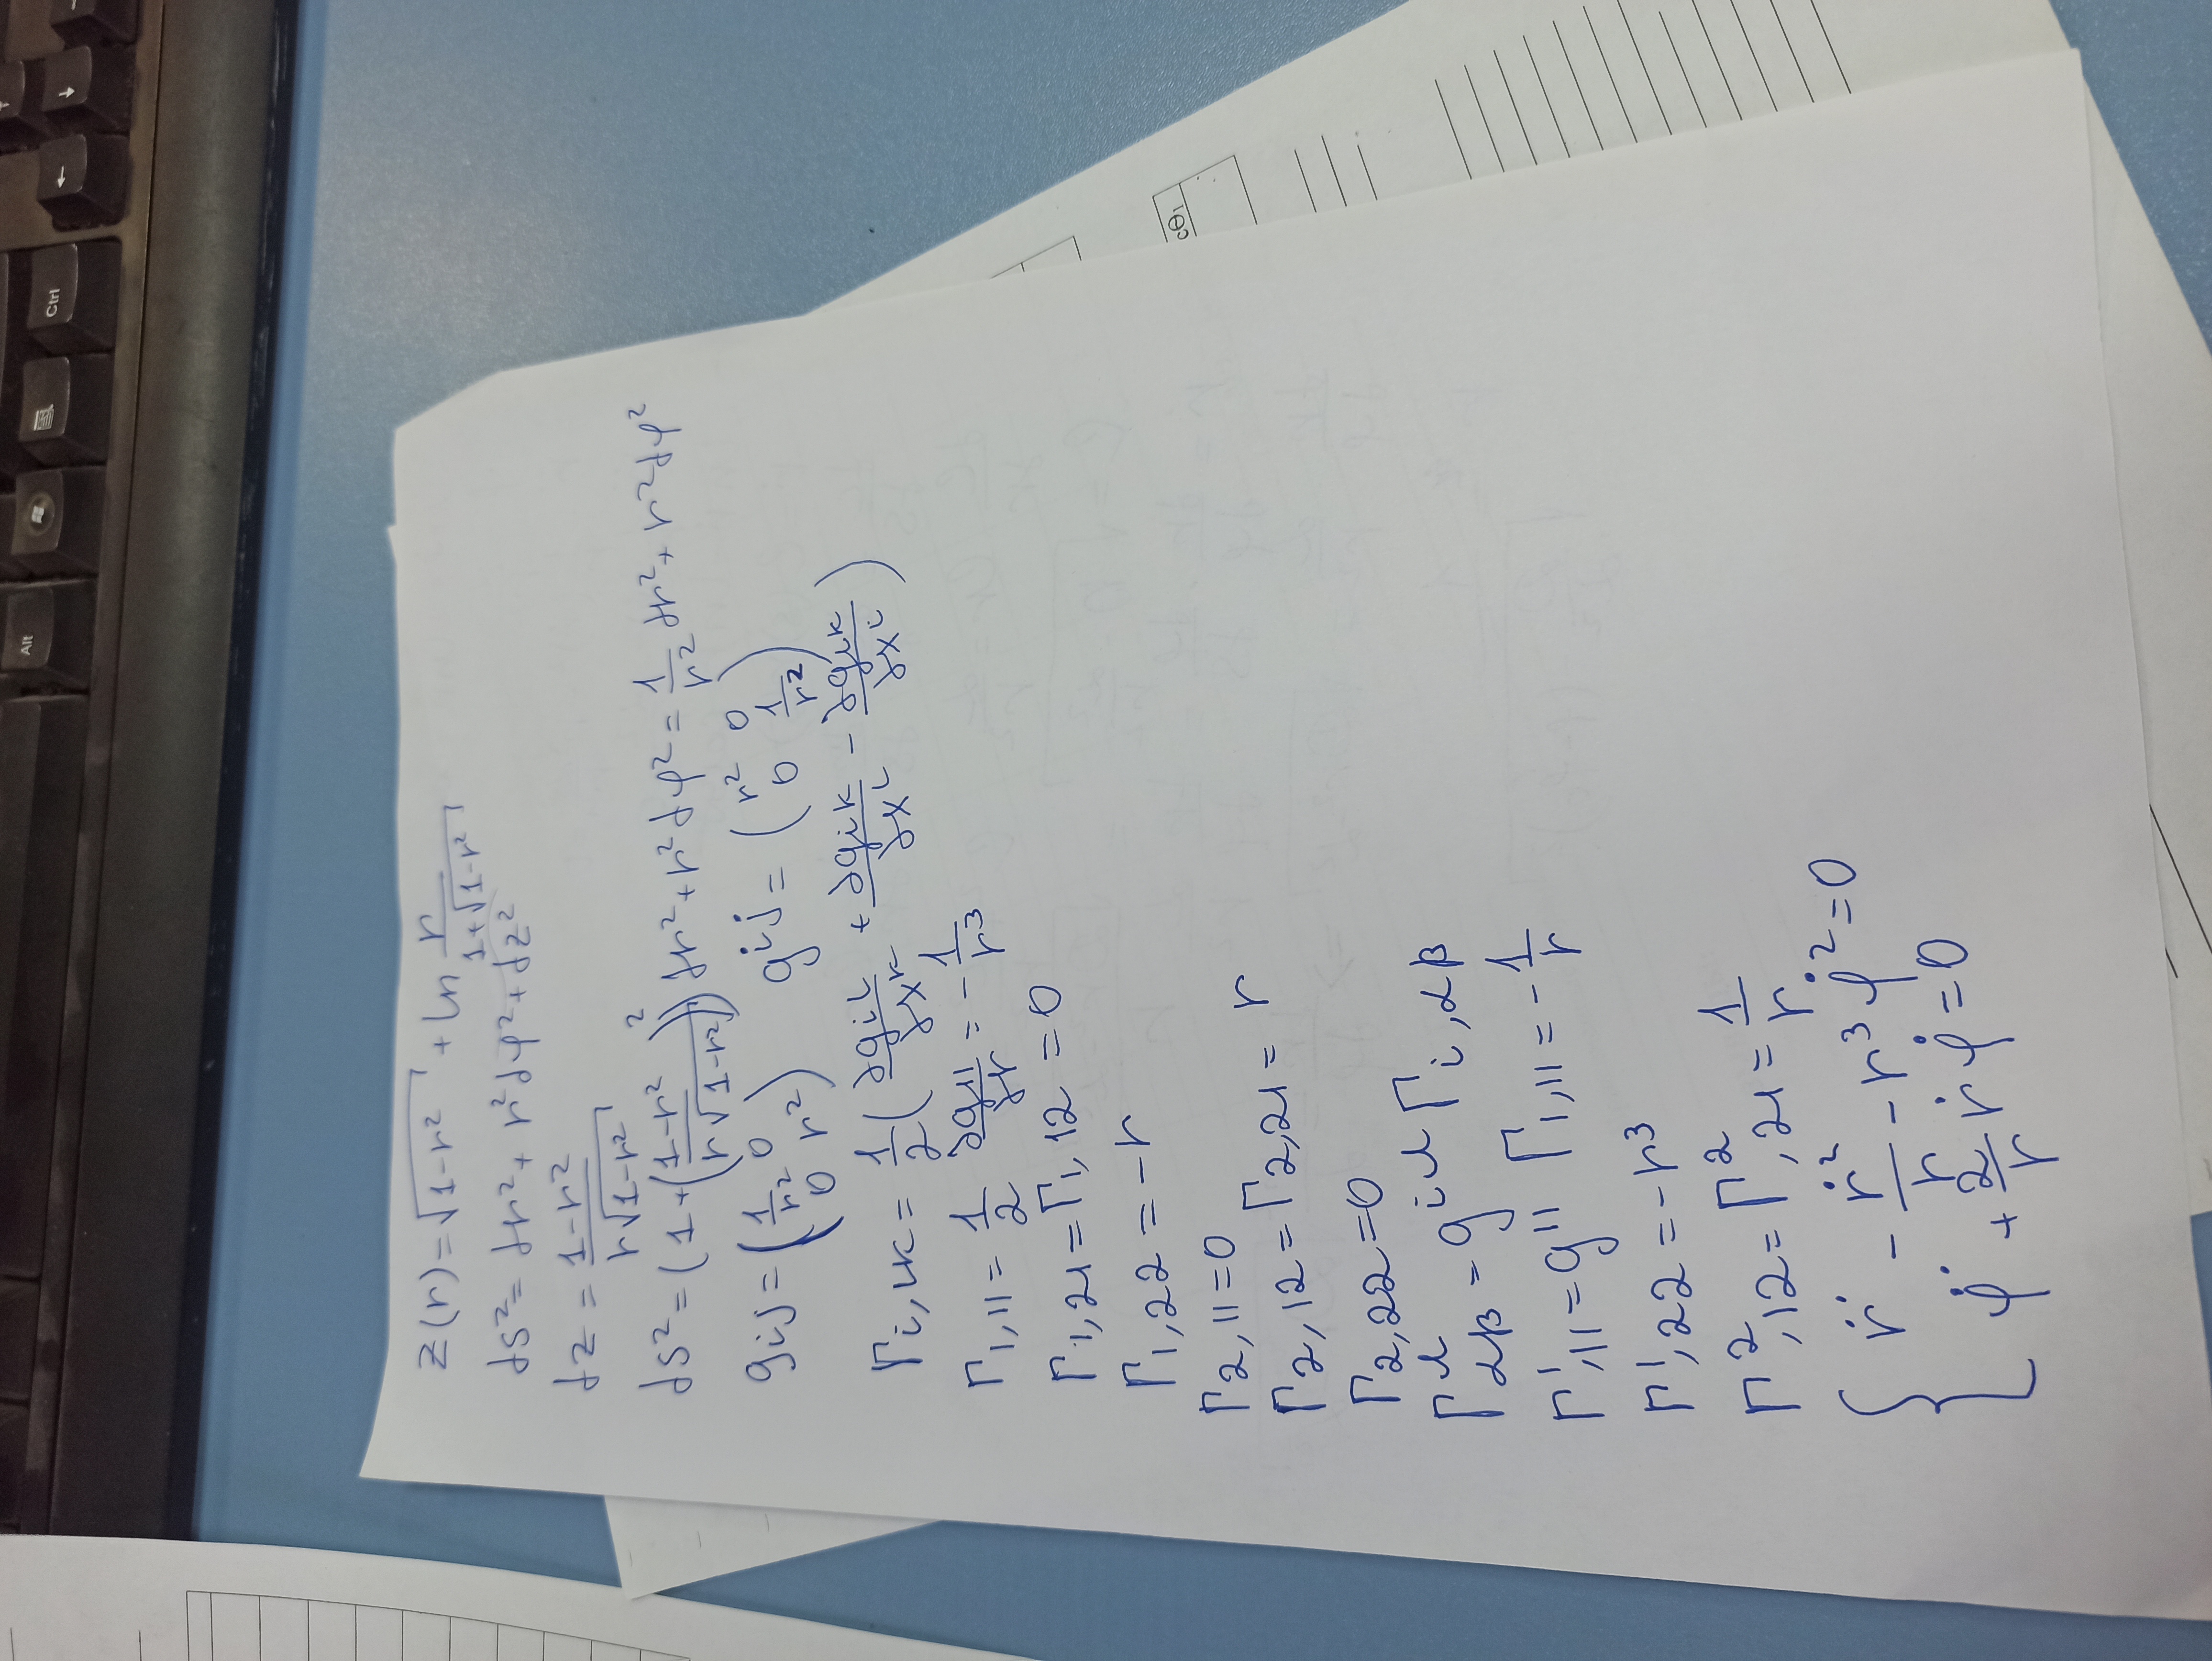 Alt
Ctrl
← ↓
z(r) = √(1-r²) + ln r/(1+√(1-r²))
ds² = dr² + r²dφ² + dz²
dz = (1-r²)/(r√(1-r²))
ds² = (1 + ((1-r²)/(r√(1-r²)))²) dr² + r²dφ² = 1/r² dr² + r²dφ²
gij = (1/r² 0 0 r²) g^ij = (r² 0 0 1/r²)
Γi,lk = 1/2 (∂gil/∂x^k + ∂gik/∂x^l - ∂gik/∂x^i)
Γ1,11 = 1/2 ∂g11/∂r = -1/r³
Γ1,21 = Γ1,12 = 0
Γ1,22 = -r
Γ2,11 = 0
Γ2,12 = Γ2,21 = r
Γ2,22 = 0
Γ^λ αβ = g^iλ Γi,αβ
Γ¹,11 = g¹¹ Γ1,11 = -1/r
Γ¹,22 = -r³
Γ²,12 = Γ²,21 = 1/r
{ r̈ - ṙ²/r - r³φ̇² = 0
φ̈ + 2/r ṙφ̇ = 0
cΘ₁